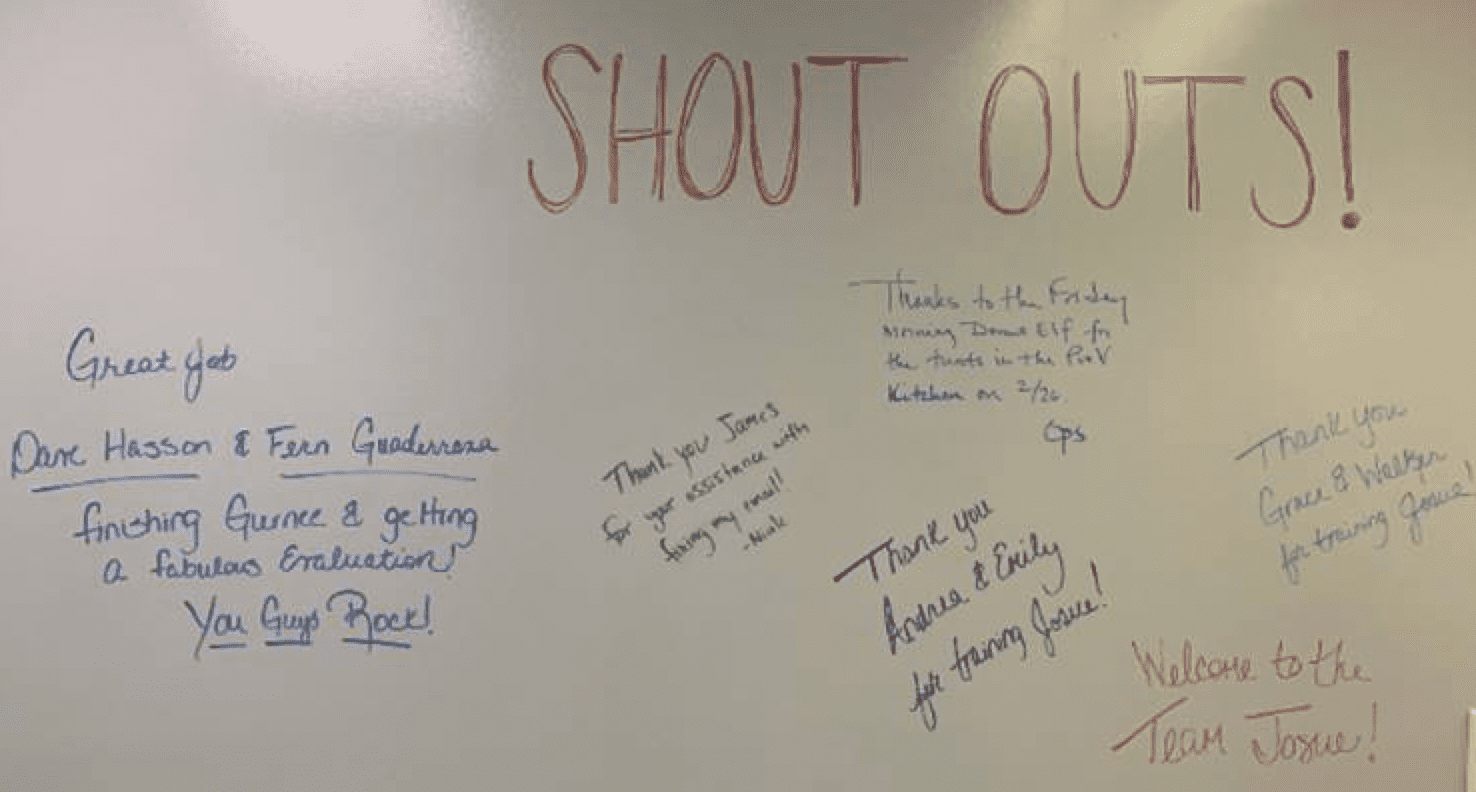 SHOUT OUTS!
Great job
Dave Hasson & Fern Guaderrama
finishing Gurnee & getting
a fabulous Evaluation!
You Guys Rock!
Thank you James
for your assistance with
fixing my email!
-Nick
Thanks to the Friday
morning Donut Elf for
the treats in the ProV
Kitchen on 2/26.
Thank you
Andrea & Emily
for training Josue!
Thank you
Grace & Walker
for training Josue!
Welcome to the
Team Josue!